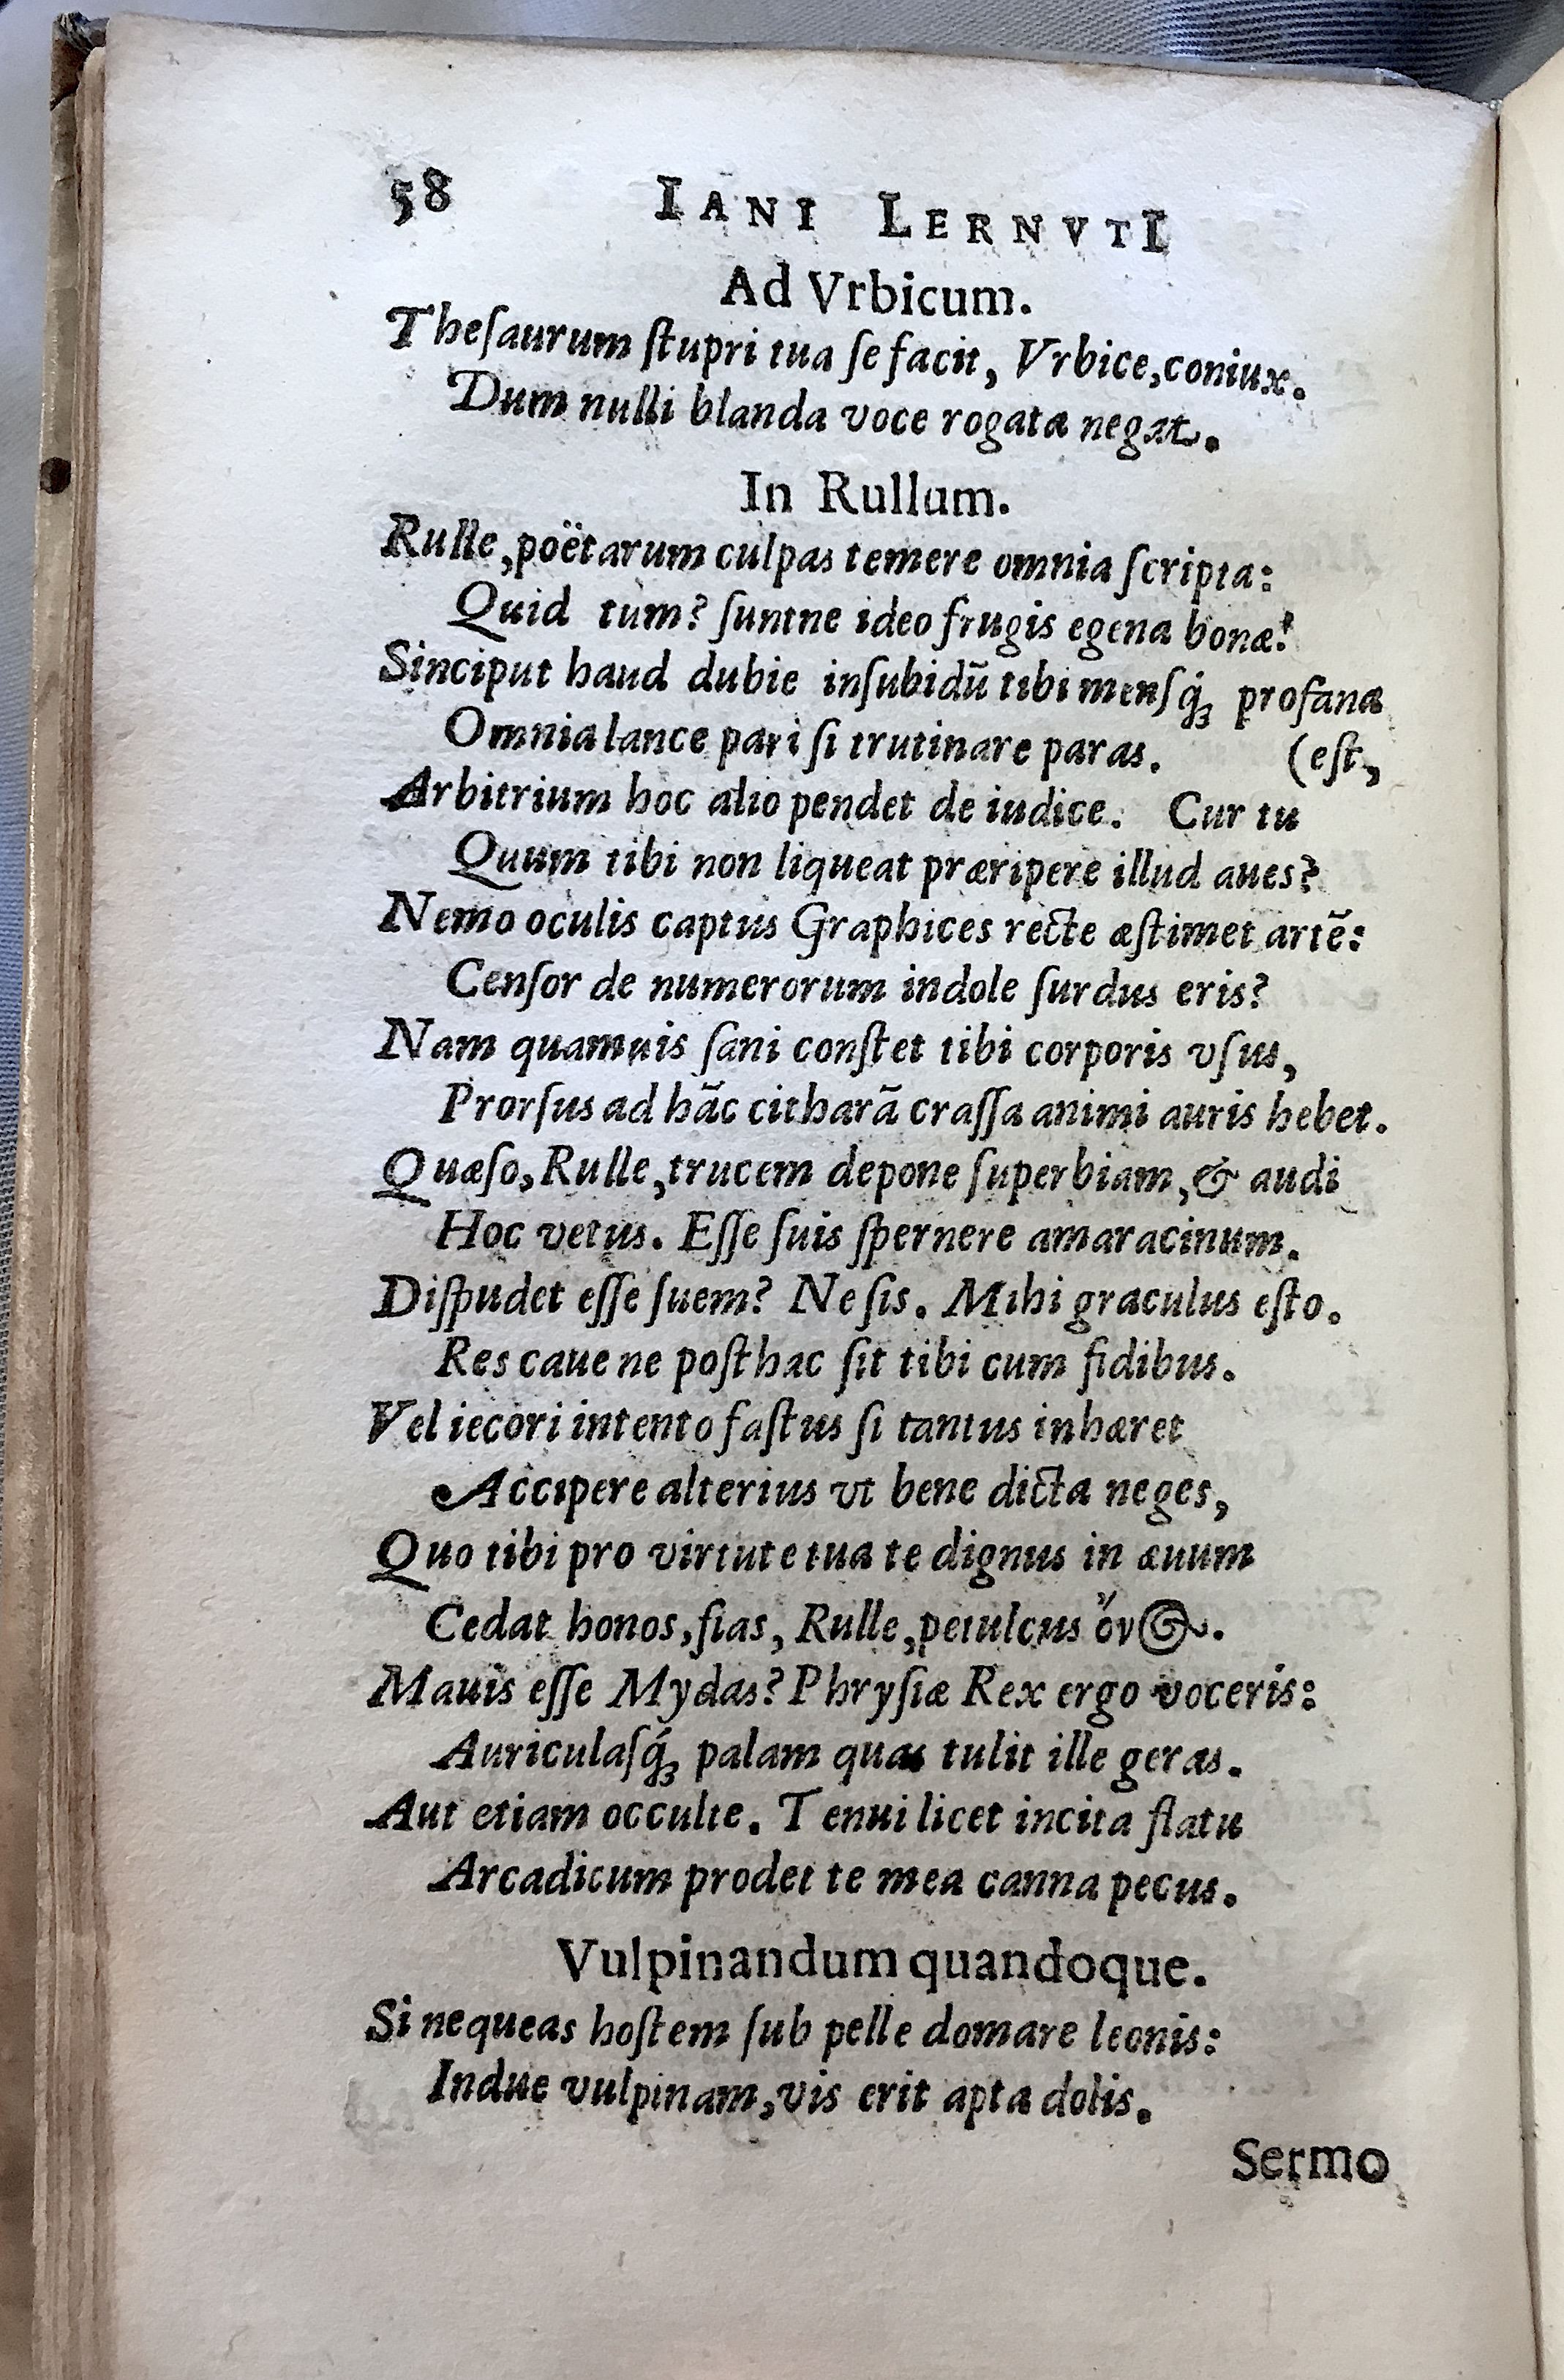 58 IANI LERNVTI
Ad Vrbicum.
Theſaurum ſtupri tua ſe facit, Vrbice, coniux.
Dum nulli blanda voce rogata negat.
In Rullum.
Rulle, poëtarum culpas temere omnia ſcripta:
Quid tum? ſuntne ideo frugis egena bonæ?
Sinciput haud dubie inſubidū tibi menſq́ꝫ profana
Omnia lance pari ſi trutinare paras. (eſt,
Arbitrium hoc alio pendet de iudice. Cur tu
Quum tibi non liqueat præripere illud aues?
Nemo oculis captus Graphices recte æſtimet artē:
Cenſor de numerorum indole ſurdus eris?
Nam quamuis ſani conſtet tibi corporis vſus,
Prorſus ad hāc citharā craſſa animi auris hebet.
Quæſo, Rulle, trucem depone ſuperbiam, & audi
Hoc vetus. Eſſe ſuis ſpernere amaracinum.
Diſpudet eſſe ſuem? Ne ſis. Mihi graculus eſto.
Res caue ne poſthac ſit tibi cum fidibus.
Vel iecori intento faſtus ſi tantus inhæret
Accipere alterius vt bene dicta neges,
Quo tibi pro virtute tua te dignus in æuum
Cedat honos, fias, Rulle, petulcus ὄνος.
Mauis eſſe Mydas? Phryſiæ Rex ergo voceris:
Auriculaſq́ꝫ palam quas tulit ille geras.
Aut etiam occulte. Tenui licet incita flatu
Arcadicum prodet te mea canna pecus.
Vulpinandum quandoque.
Si nequeas hoſtem ſub pelle domare leonis:
Indue vulpinam, vis erit apta dolis.
Sermo